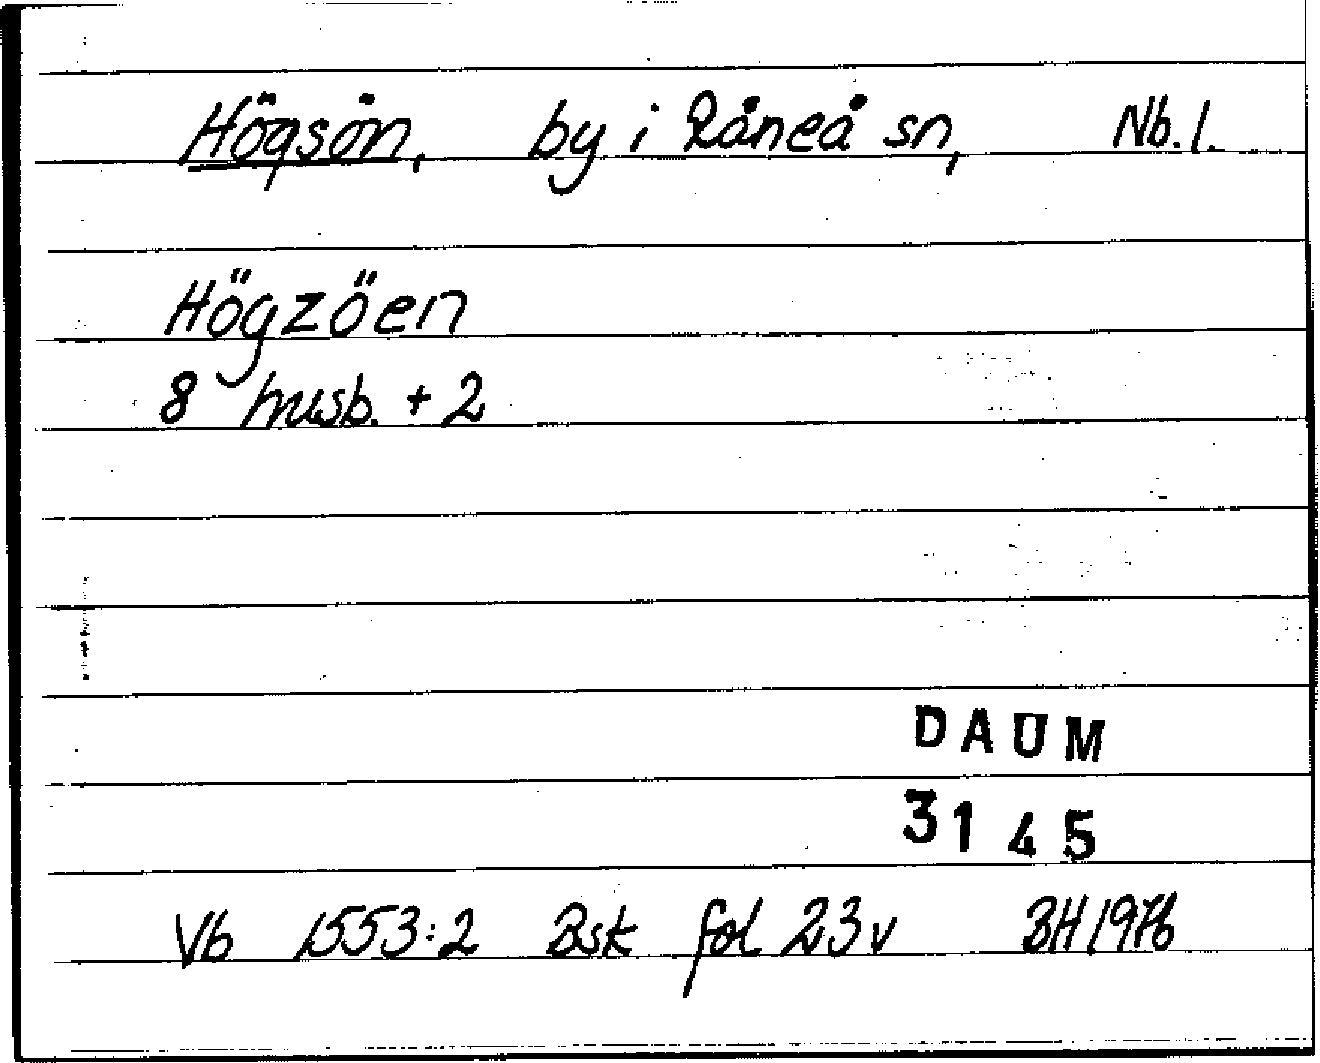 Högsön, by i Råneå sn, Nb.l.
Högzöen
8 husb. + 2
DAUM
3145
Vb 1553:2 Bsk fol 23v BH 1976